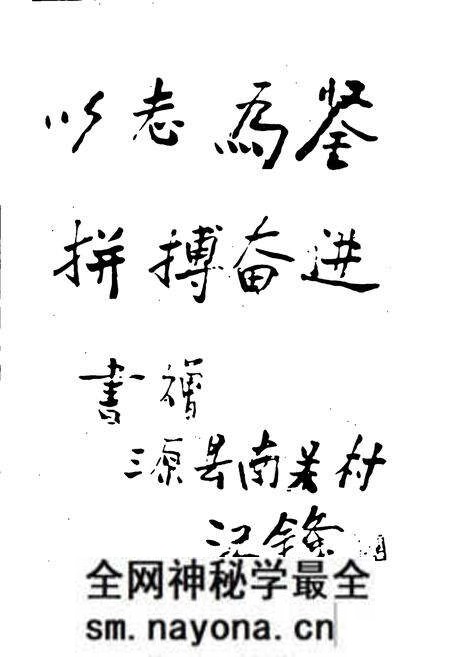 以志為鉴
拼搏奋进
書赠
三原县南关村
全网神秘学最全
sm.nayona.cn